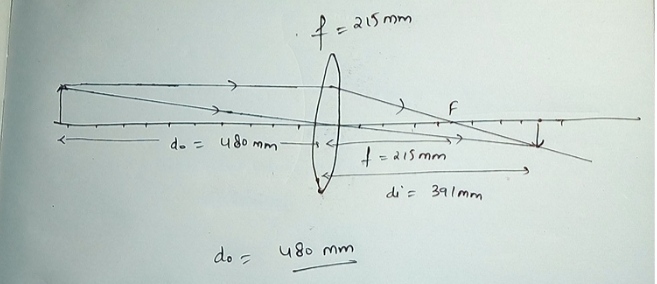 f = 215mm
F
do = 480 mm
f = 215mm
di = 391mm
do = 480 mm